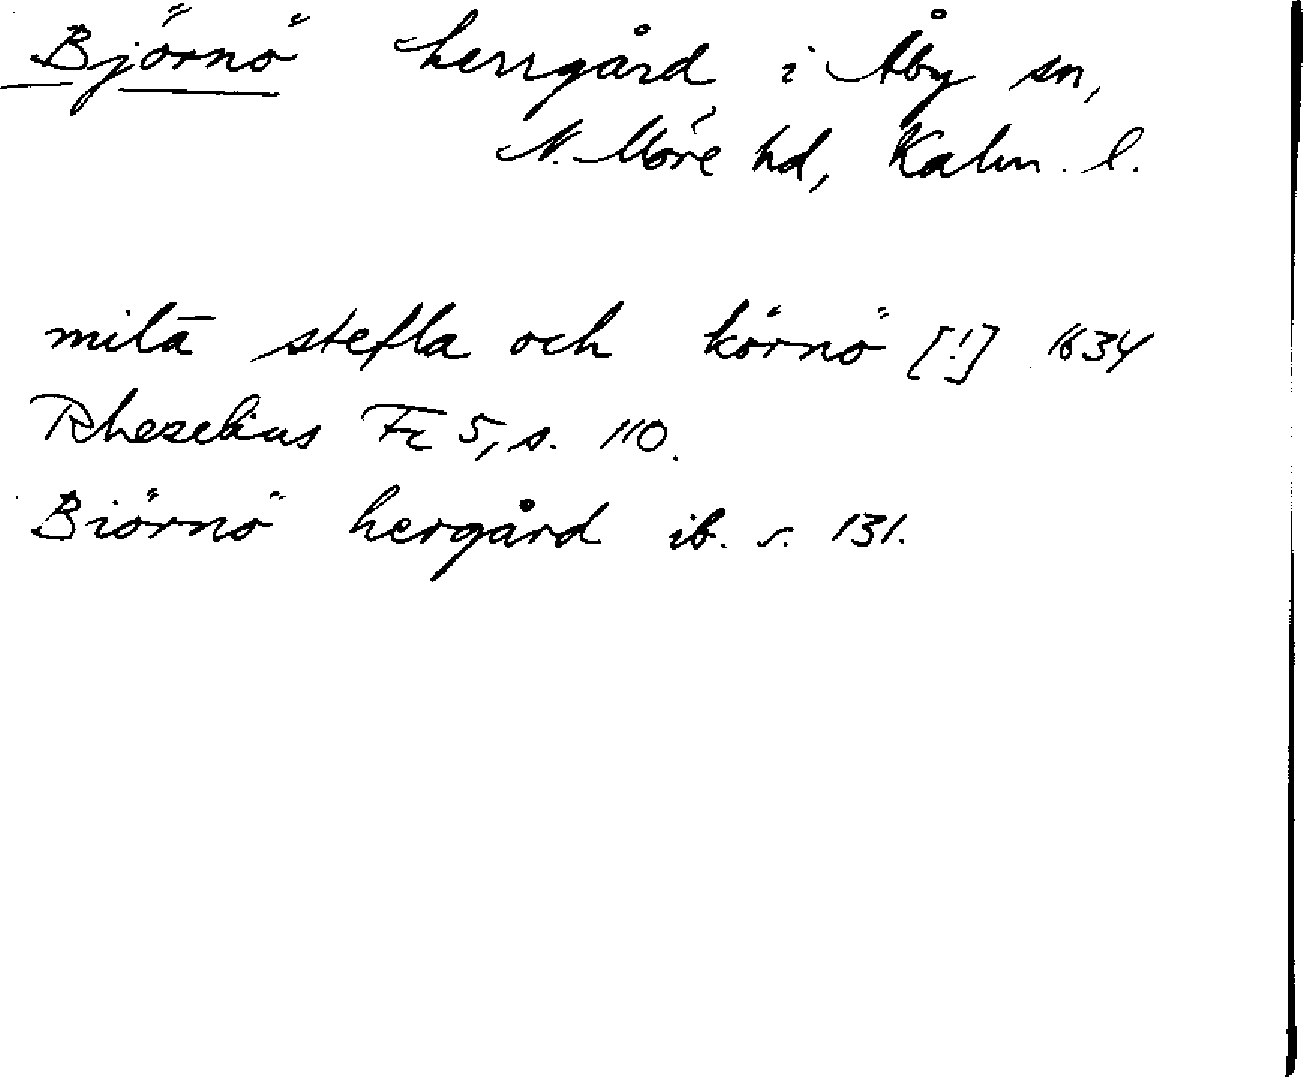 Björnö herrgård i Åby sn,
N. Möre hd, Kalm. l.
milā stefla och körnö [!] 1634
Rhezelius Fc 5, s. 110.
Biörnö hergård ib. s. 131.